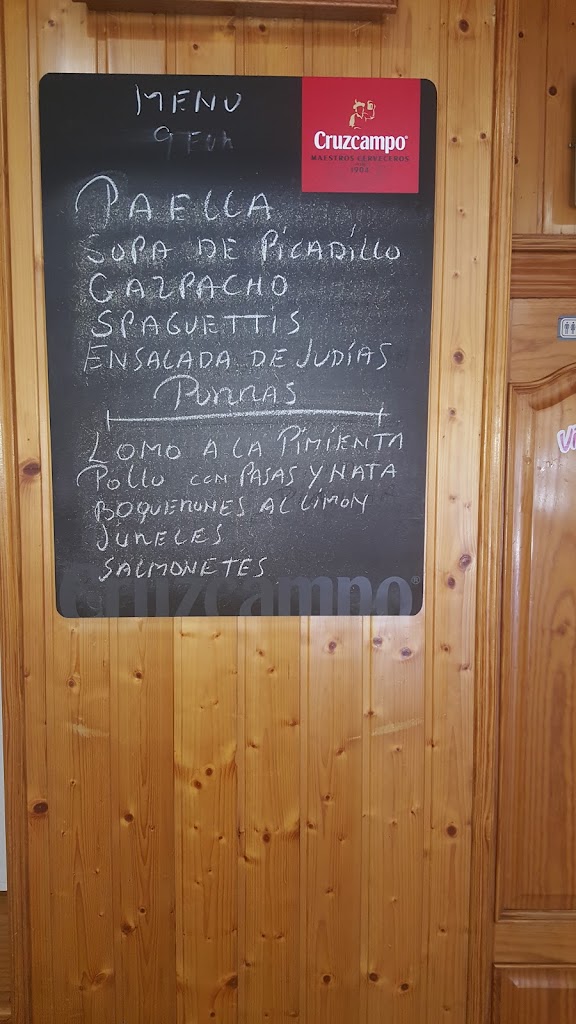 MENU
9 EUR
Cruzcampo®
MAESTROS CERVECEROS
1904
PAELLA
SOPA DE PICADILLO
GAZPACHO
SPAGUETTIS
ENSALADA DE JUDÍAS
PURRAS
LOMO A LA PIMIENTA
POLLO CON PASAS Y NATA
BOQUERONES AL LIMON
JURELES
SALMONETES
Cruzcampo®